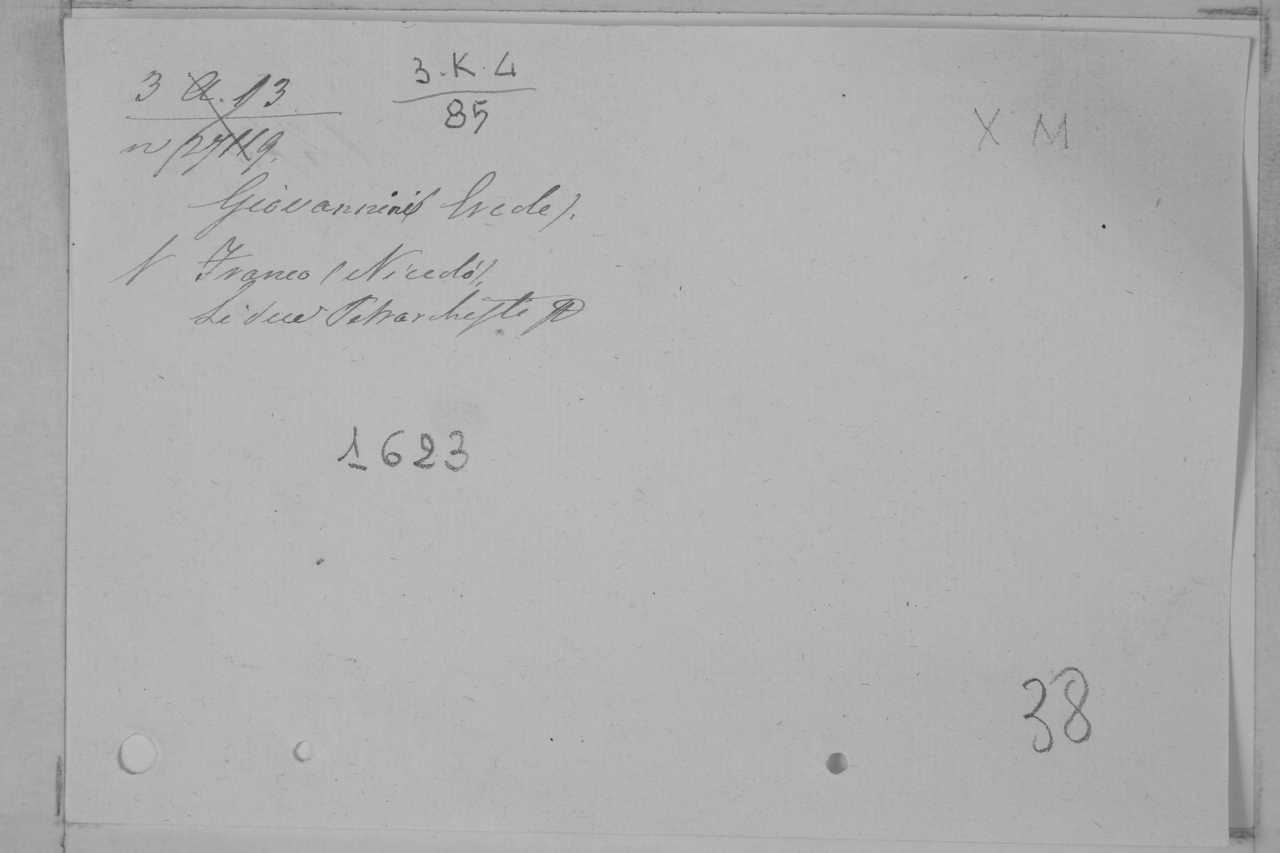 3 A. 13
3.K.4
85
X M
Giovannini (Erede).
N Franco (Nicolò).
Li due Petrarchisti
1623
38